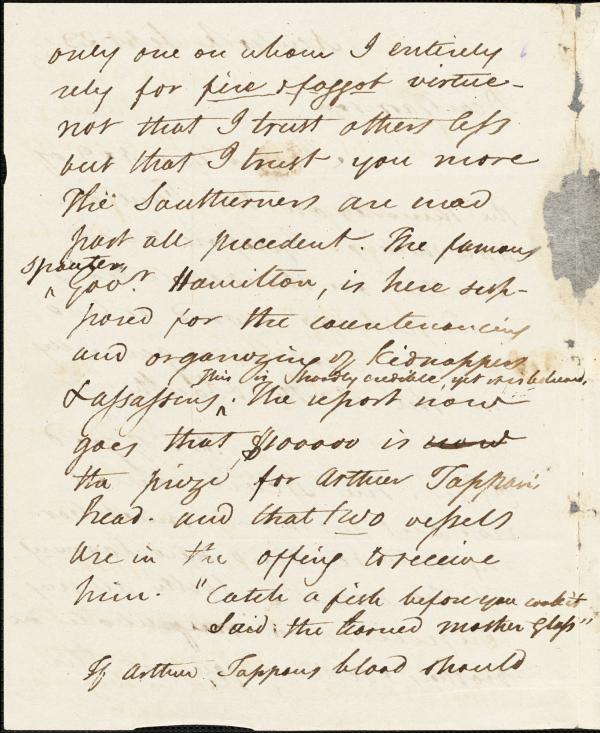 only one on whom I entirely
rely for fire & faggot virtue -
not that I trust others less
but that I trust you more
The Southerners are mad
past all precedent. The famous
spouter,
^ Gov.r Hamilton, is here sup-
posed for the countenancing
and organizing of Kidnappers
This is hardly credible, yet it is believed.
& assassins. ^ The report now
goes that $100000 is now
the prize for Arthur Tappan's
head. and that two vessels
are in the offing to receive
him. "Catch a fish before you cook it
Said the learned mother Glass"
If Arthur Tappans blood should